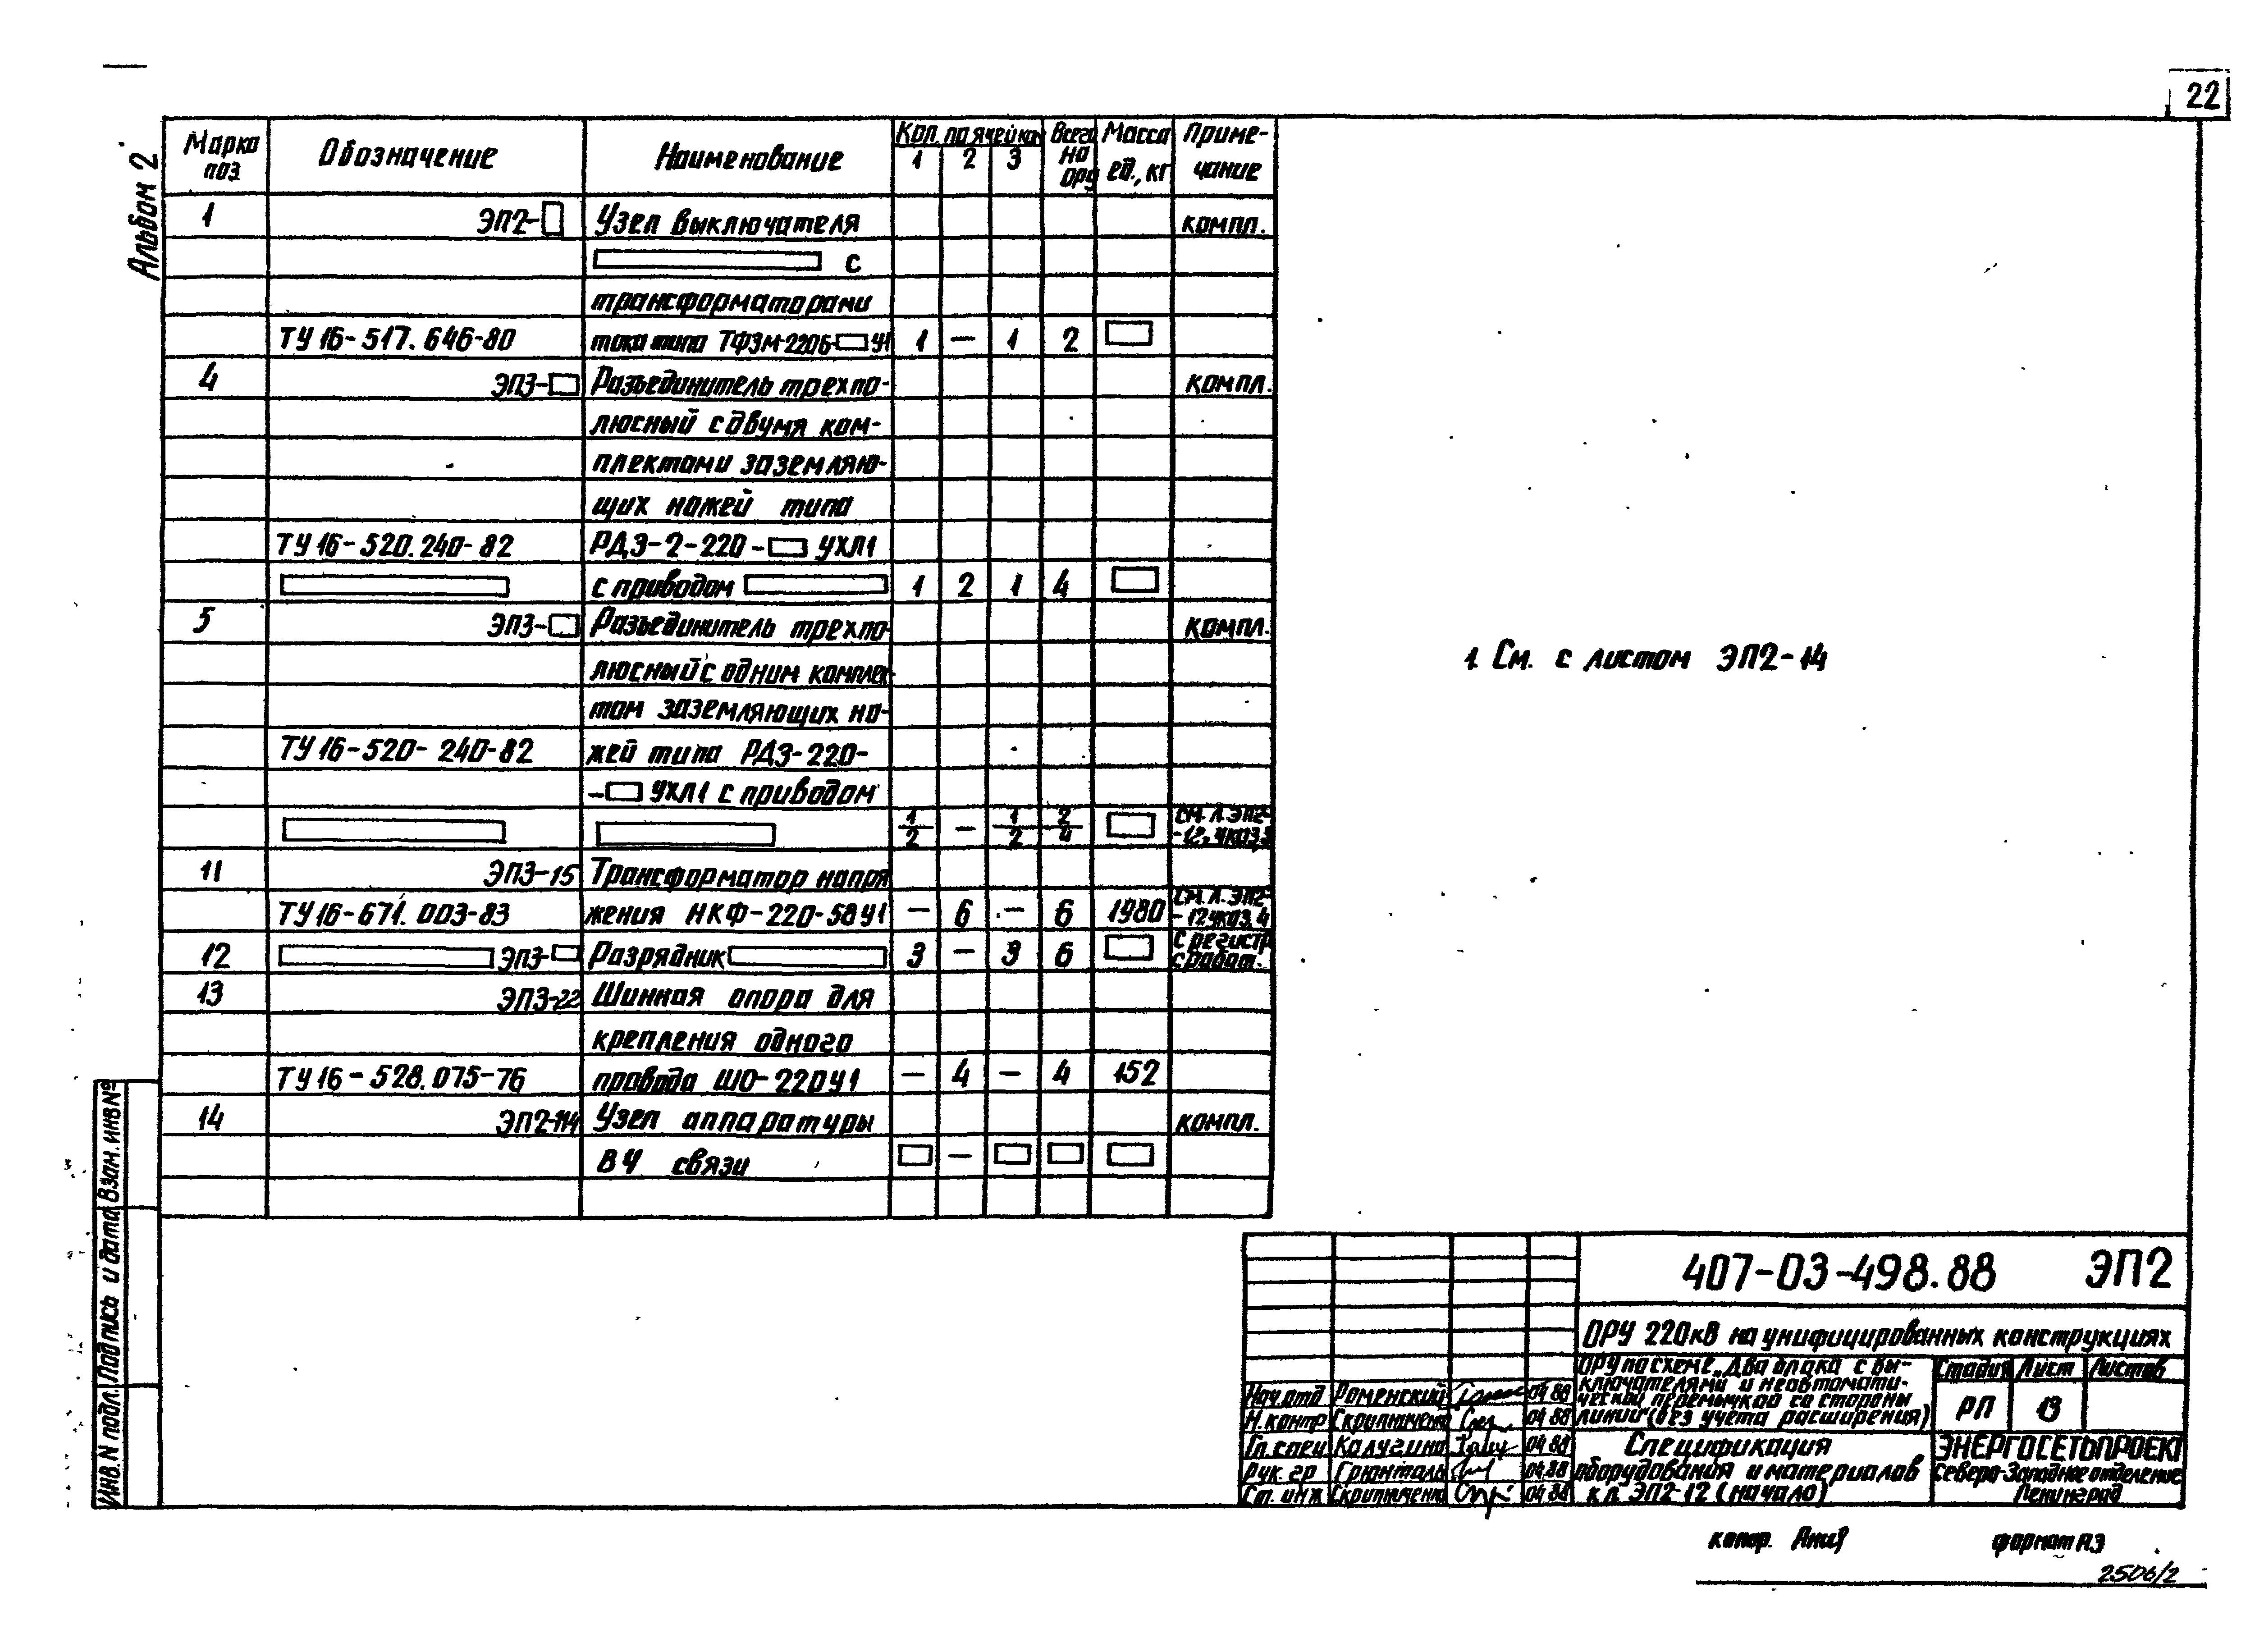 22
Альбом 2
Марка поз. Обозначение Наименование Кол. по ячейкам 1 2 3 Всего на ОРУ Масса ед., кг Приме-чание
1 ЭП2-□ Узел выключателя компл.
□ с
трансформаторами
ТУ 16-517.646-80 тока типа ТФЗМ-220Б-□ У1 1 — 1 2 □
4 ЭП3-□ Разъединитель трехпо- компл.
люсный с двумя ком-
плектами заземляю-
щих ножей типа
ТУ 16-520.240-82 РДЗ-2-220-□ УХЛ1
□ с приводом □ 1 2 1 4 □
5 ЭП3-□ Разъединитель трехпо компл.
люсный с одним комплек-
том заземляющих но-
ТУ 16-520-240-82 жей типа РДЗ-220-
-□ УХЛ1 с приводом
□ □ 1/2 — 1/2 2/4 □ См. л. ЭП2--12, указ.3
11 ЭП3-15 Трансформатор напря
ТУ 16-671.003-83 жения НКФ-220-58У1 — 6 — 6 1980 См. л. ЭП2--12 указ.4
12 □ ЭП3-□ Разрядник □ 3 — 3 6 □ с регистр. срабат.
13 ЭП3-22 Шинная опора для
крепления одного
ТУ 16-528.075-76 провода ШО-220У1 — 4 — 4 152
14 ЭП2-114 Узел аппаратуры компл.
ВЧ связи □ — □ □ □
1. См. с листом ЭП2-14
Инв. N подл. Подпись и дата Взам. инв N°
407-03-498.88 ЭП2
ОРУ 220кВ на унифицированных конструкциях
ОРУ по схеме „Два блока с вы-
ключателями и неавтомати-
ческой перемычкой со стороны
линий“ (без учета расширения)
Стадия Лист Листов
РП 13
Нач.отд Роменский 04.88
Н.контр Скрипниченко 04.88
Гл.спец Калугина 04.88
Рук.гр Грюнталь 04.88
Ст. инж Скрипниченко 04.88
Спецификация
оборудования и материалов
к л. ЭП2-12 (начало)
ЭНЕРГОСЕТЬПРОЕКТ
Северо-Западное отделение
Ленинград
копир. формат А3
2506/2